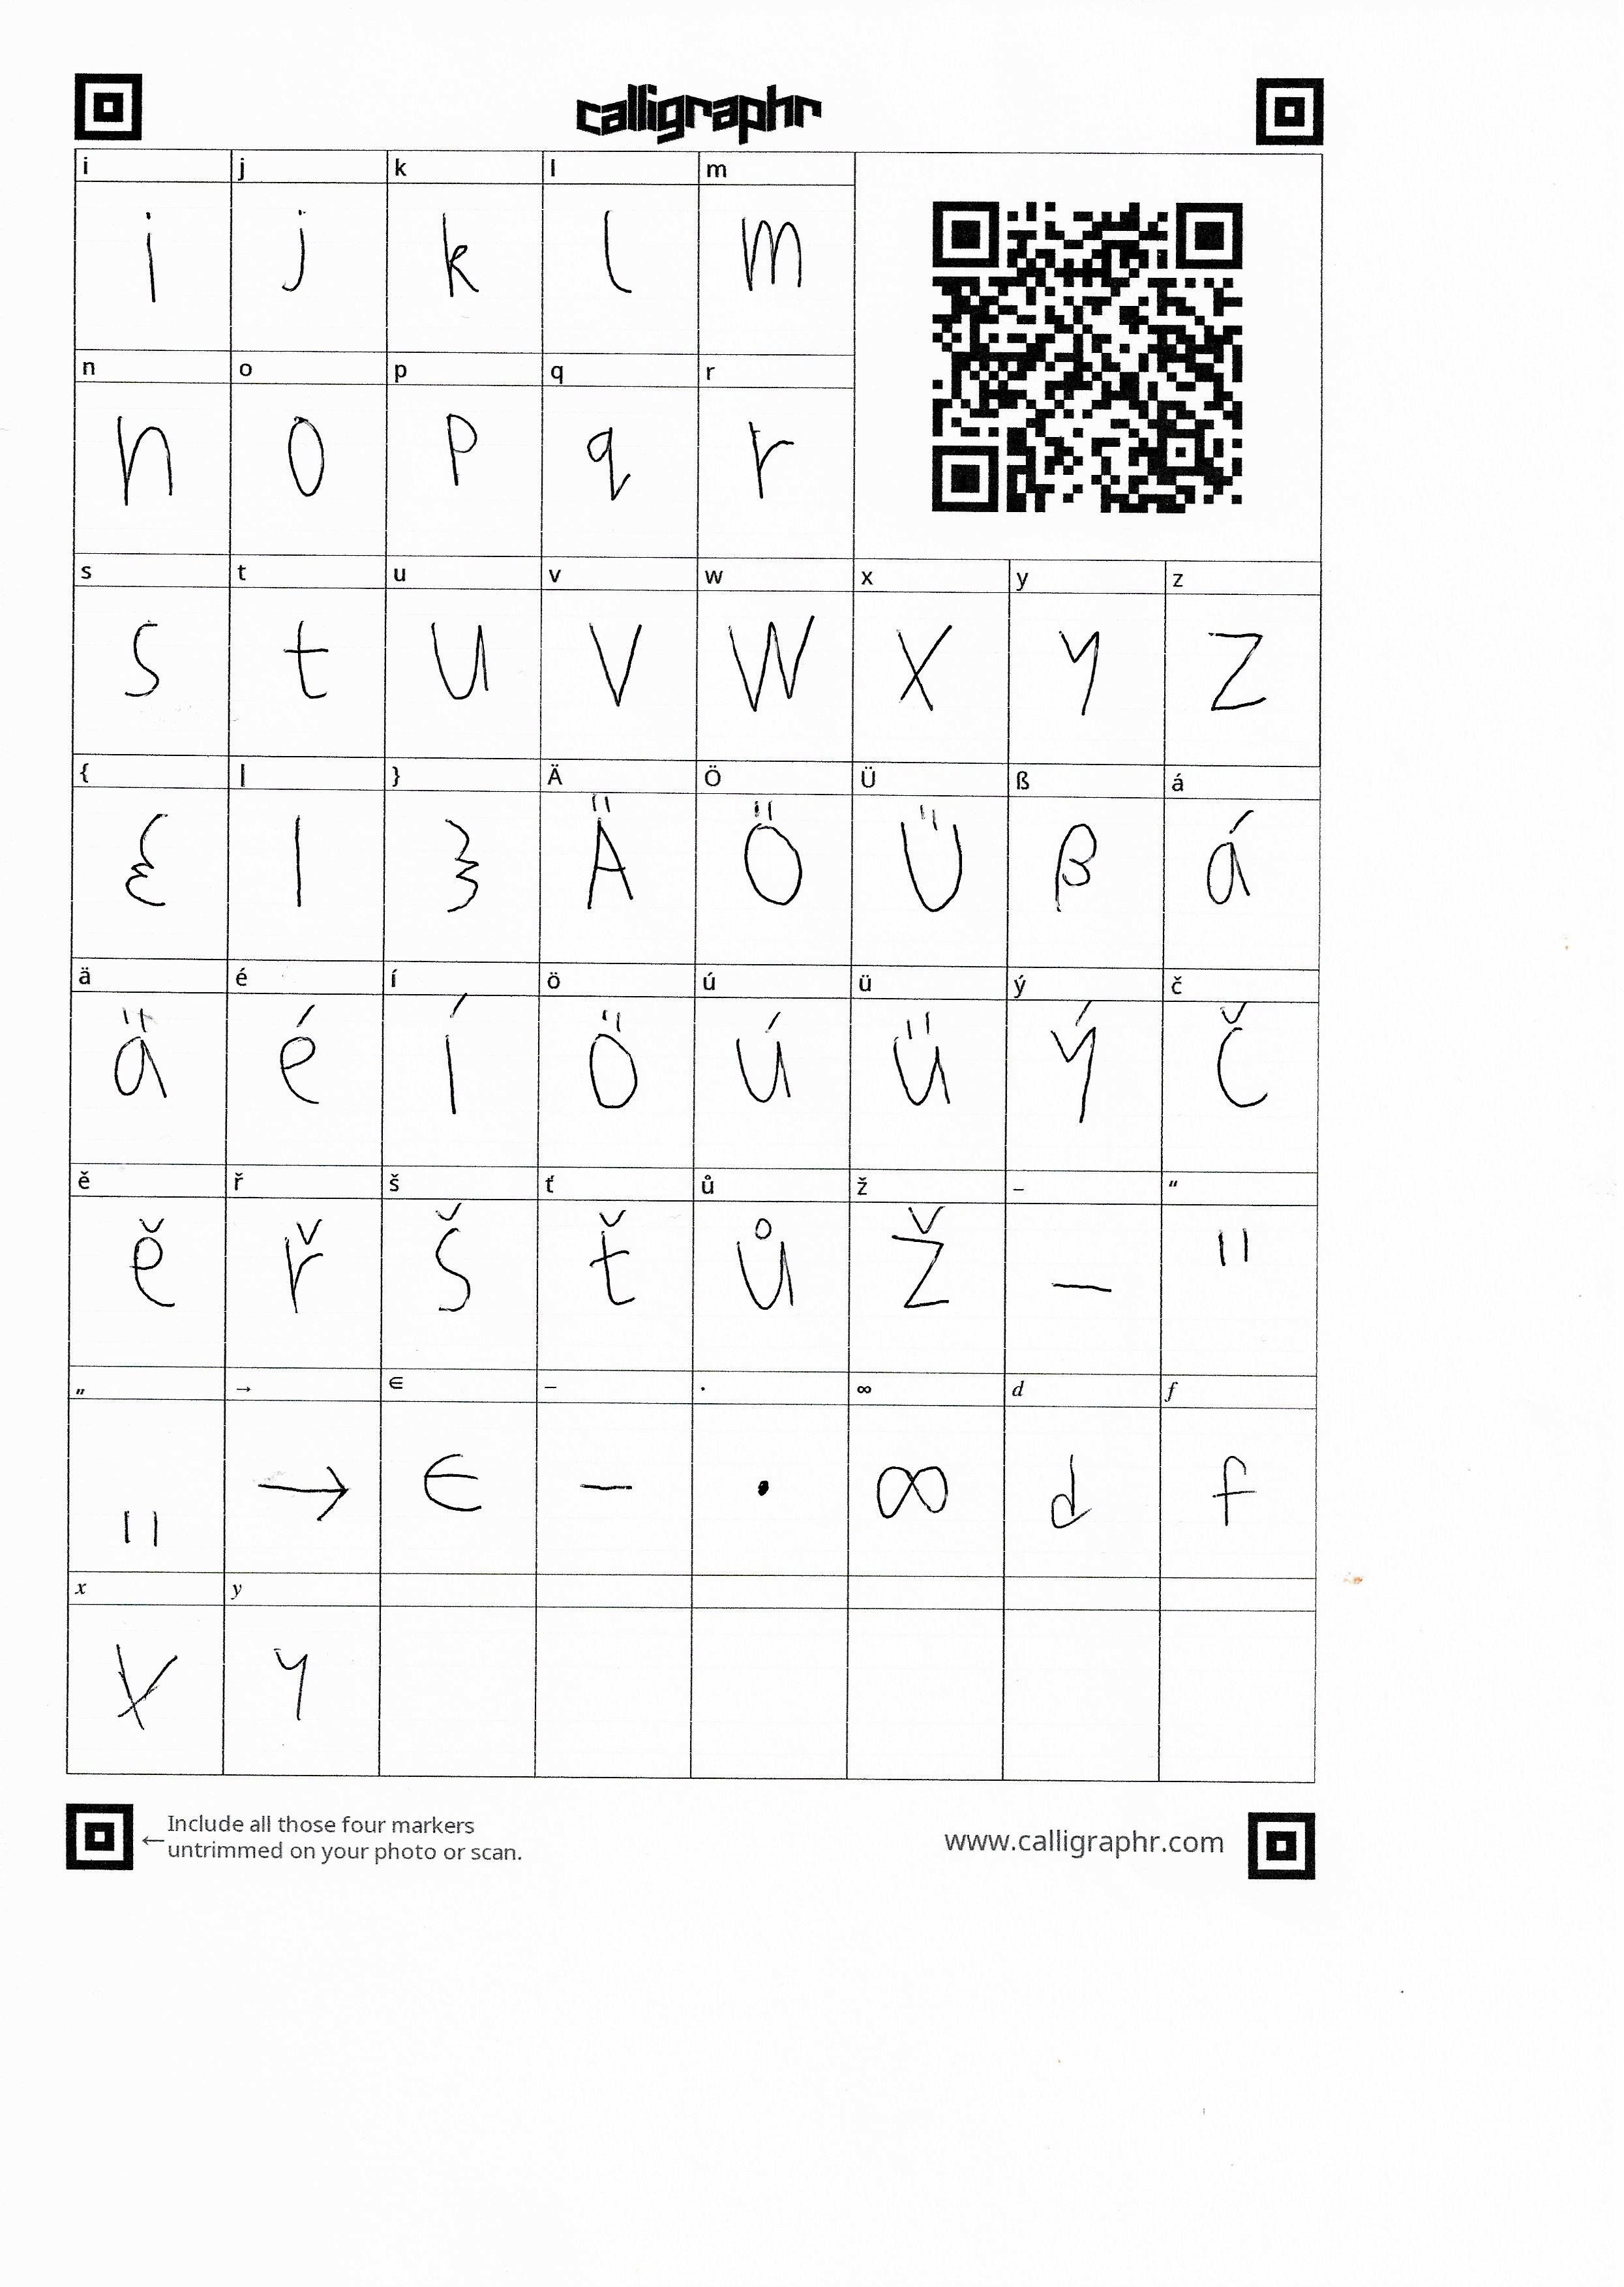 calligraphr
i j k l m
i j k l m
n o p q r
n o p q r
s t u v w x y z
s t u v w x y z
{ | } Ä Ö Ü ß á
{ | } Ä Ö Ü ß á
ä é í ö ú ü ý č
ä é í ö ú ü ý č
ě ř š ť ů ž – “
ě ř š ť ů ž – "
„ → ∈ − · ∞ 𝑑 𝑓
" → ∈ − · ∞ d f
𝑥 𝑦
x y
←Include all those four markers
untrimmed on your photo or scan.
www.calligraphr.com